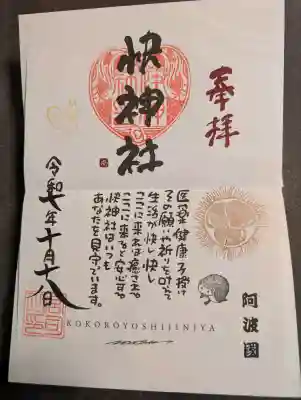 奉拝
快神社
医薬健康万授け
その願いや祈りを叶えて
生活が快し快し
ここに来れば癒される
ここに来ると安心する
快神社はいつも
あなたを見守ています。
令和七年十月十八日
阿波國
KOKOROYOSHIJINJYA